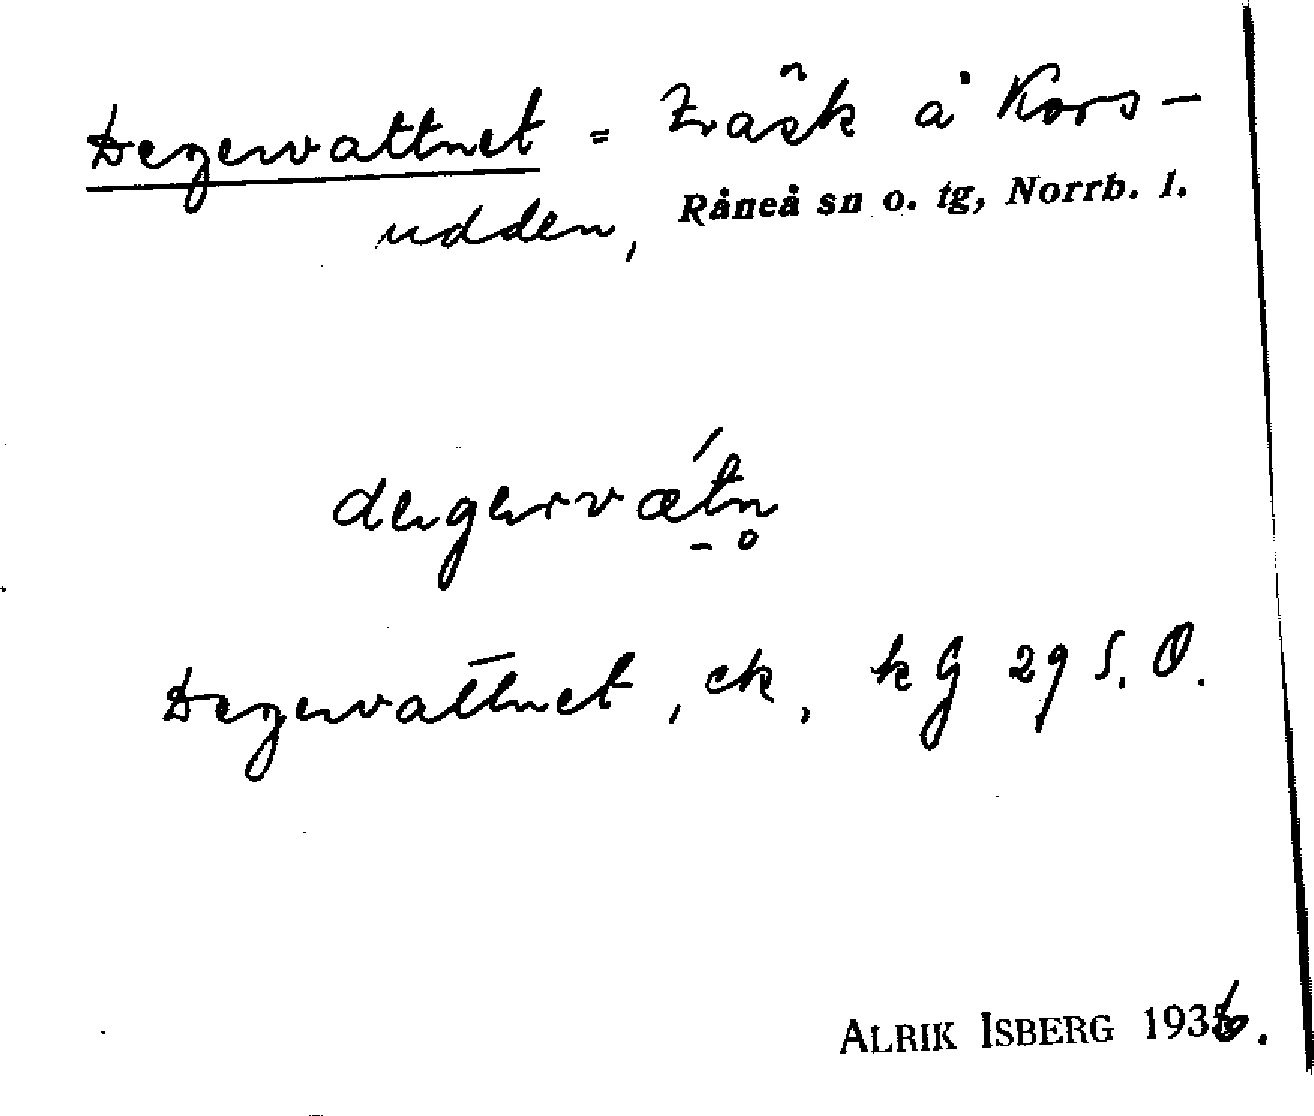 Degervattnet = Träsk å Kors-
udden, Råneå sn o. tg, Norrb. l.
degervætn̥
Degervattnet, ek, kG 29 S.O.
ALRIK ISBERG 1936.